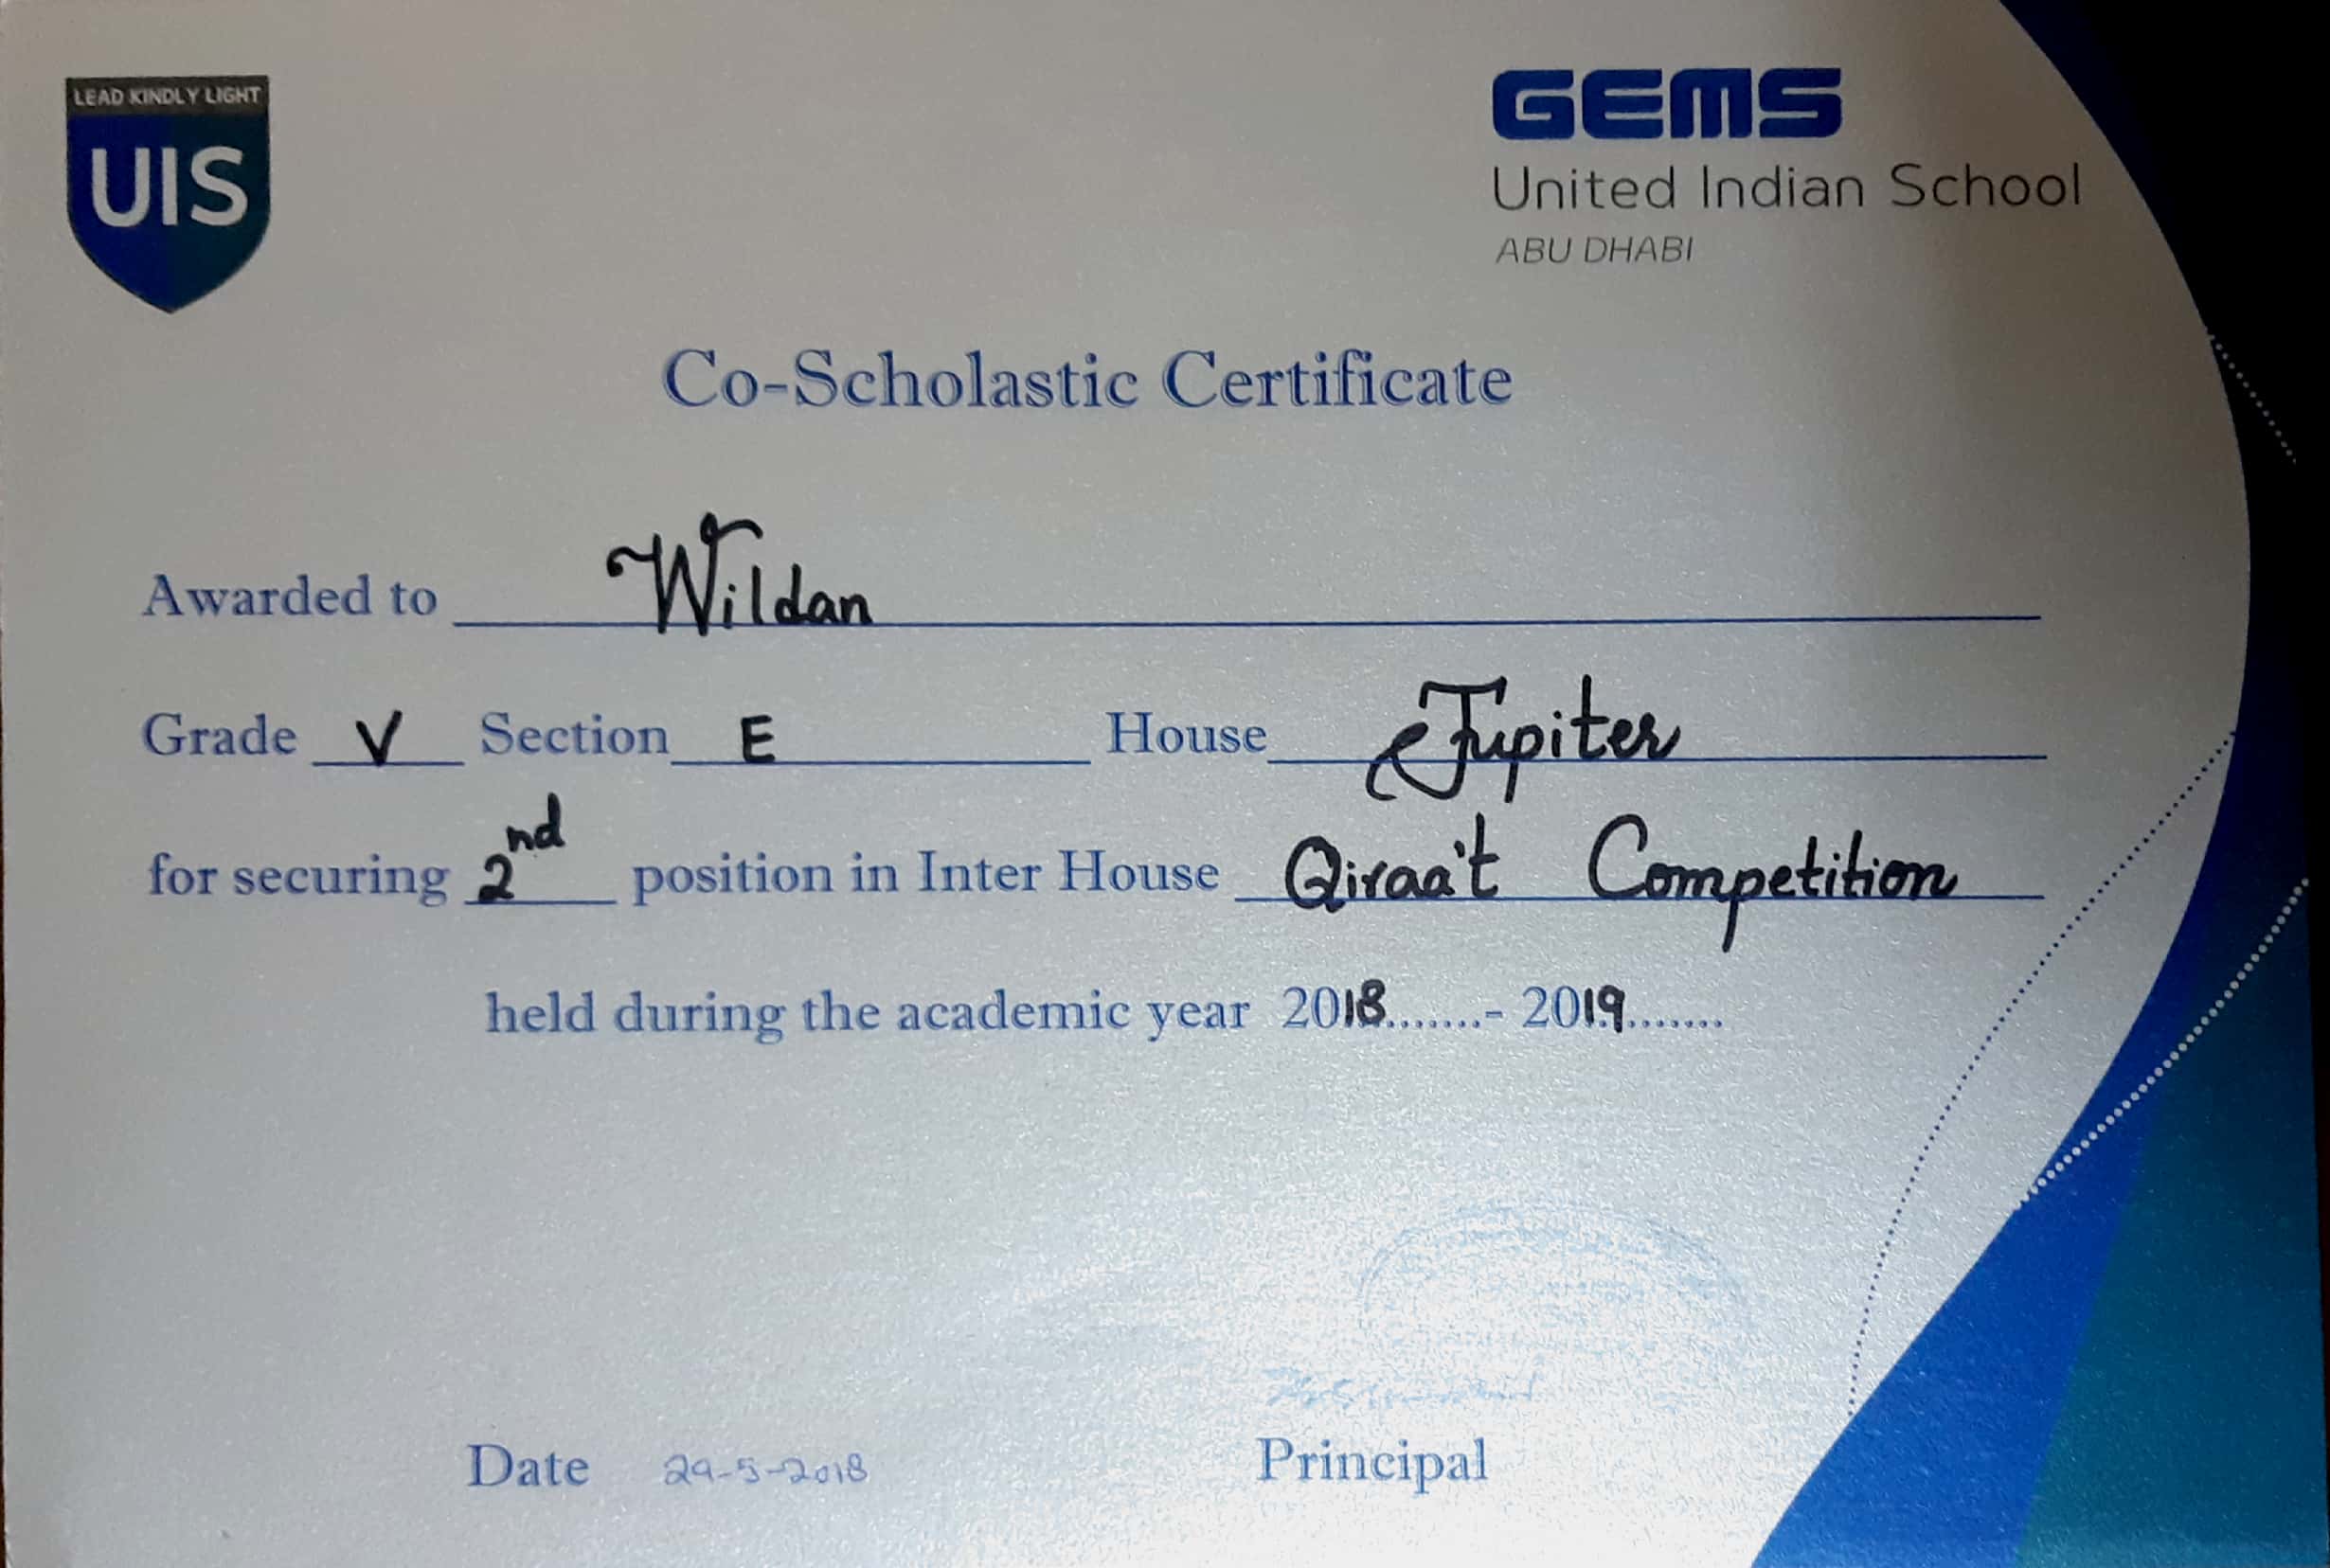 LEAD KINDLY LIGHT
UIS
GEMS
United Indian School
ABU DHABI
Co-Scholastic Certificate
Awarded to Wildan
Grade V Section E House Jupiter
for securing 2nd position in Inter House Qiraa't Competition
held during the academic year 2018.......- 2019.......
Date 29-5-2018 Principal